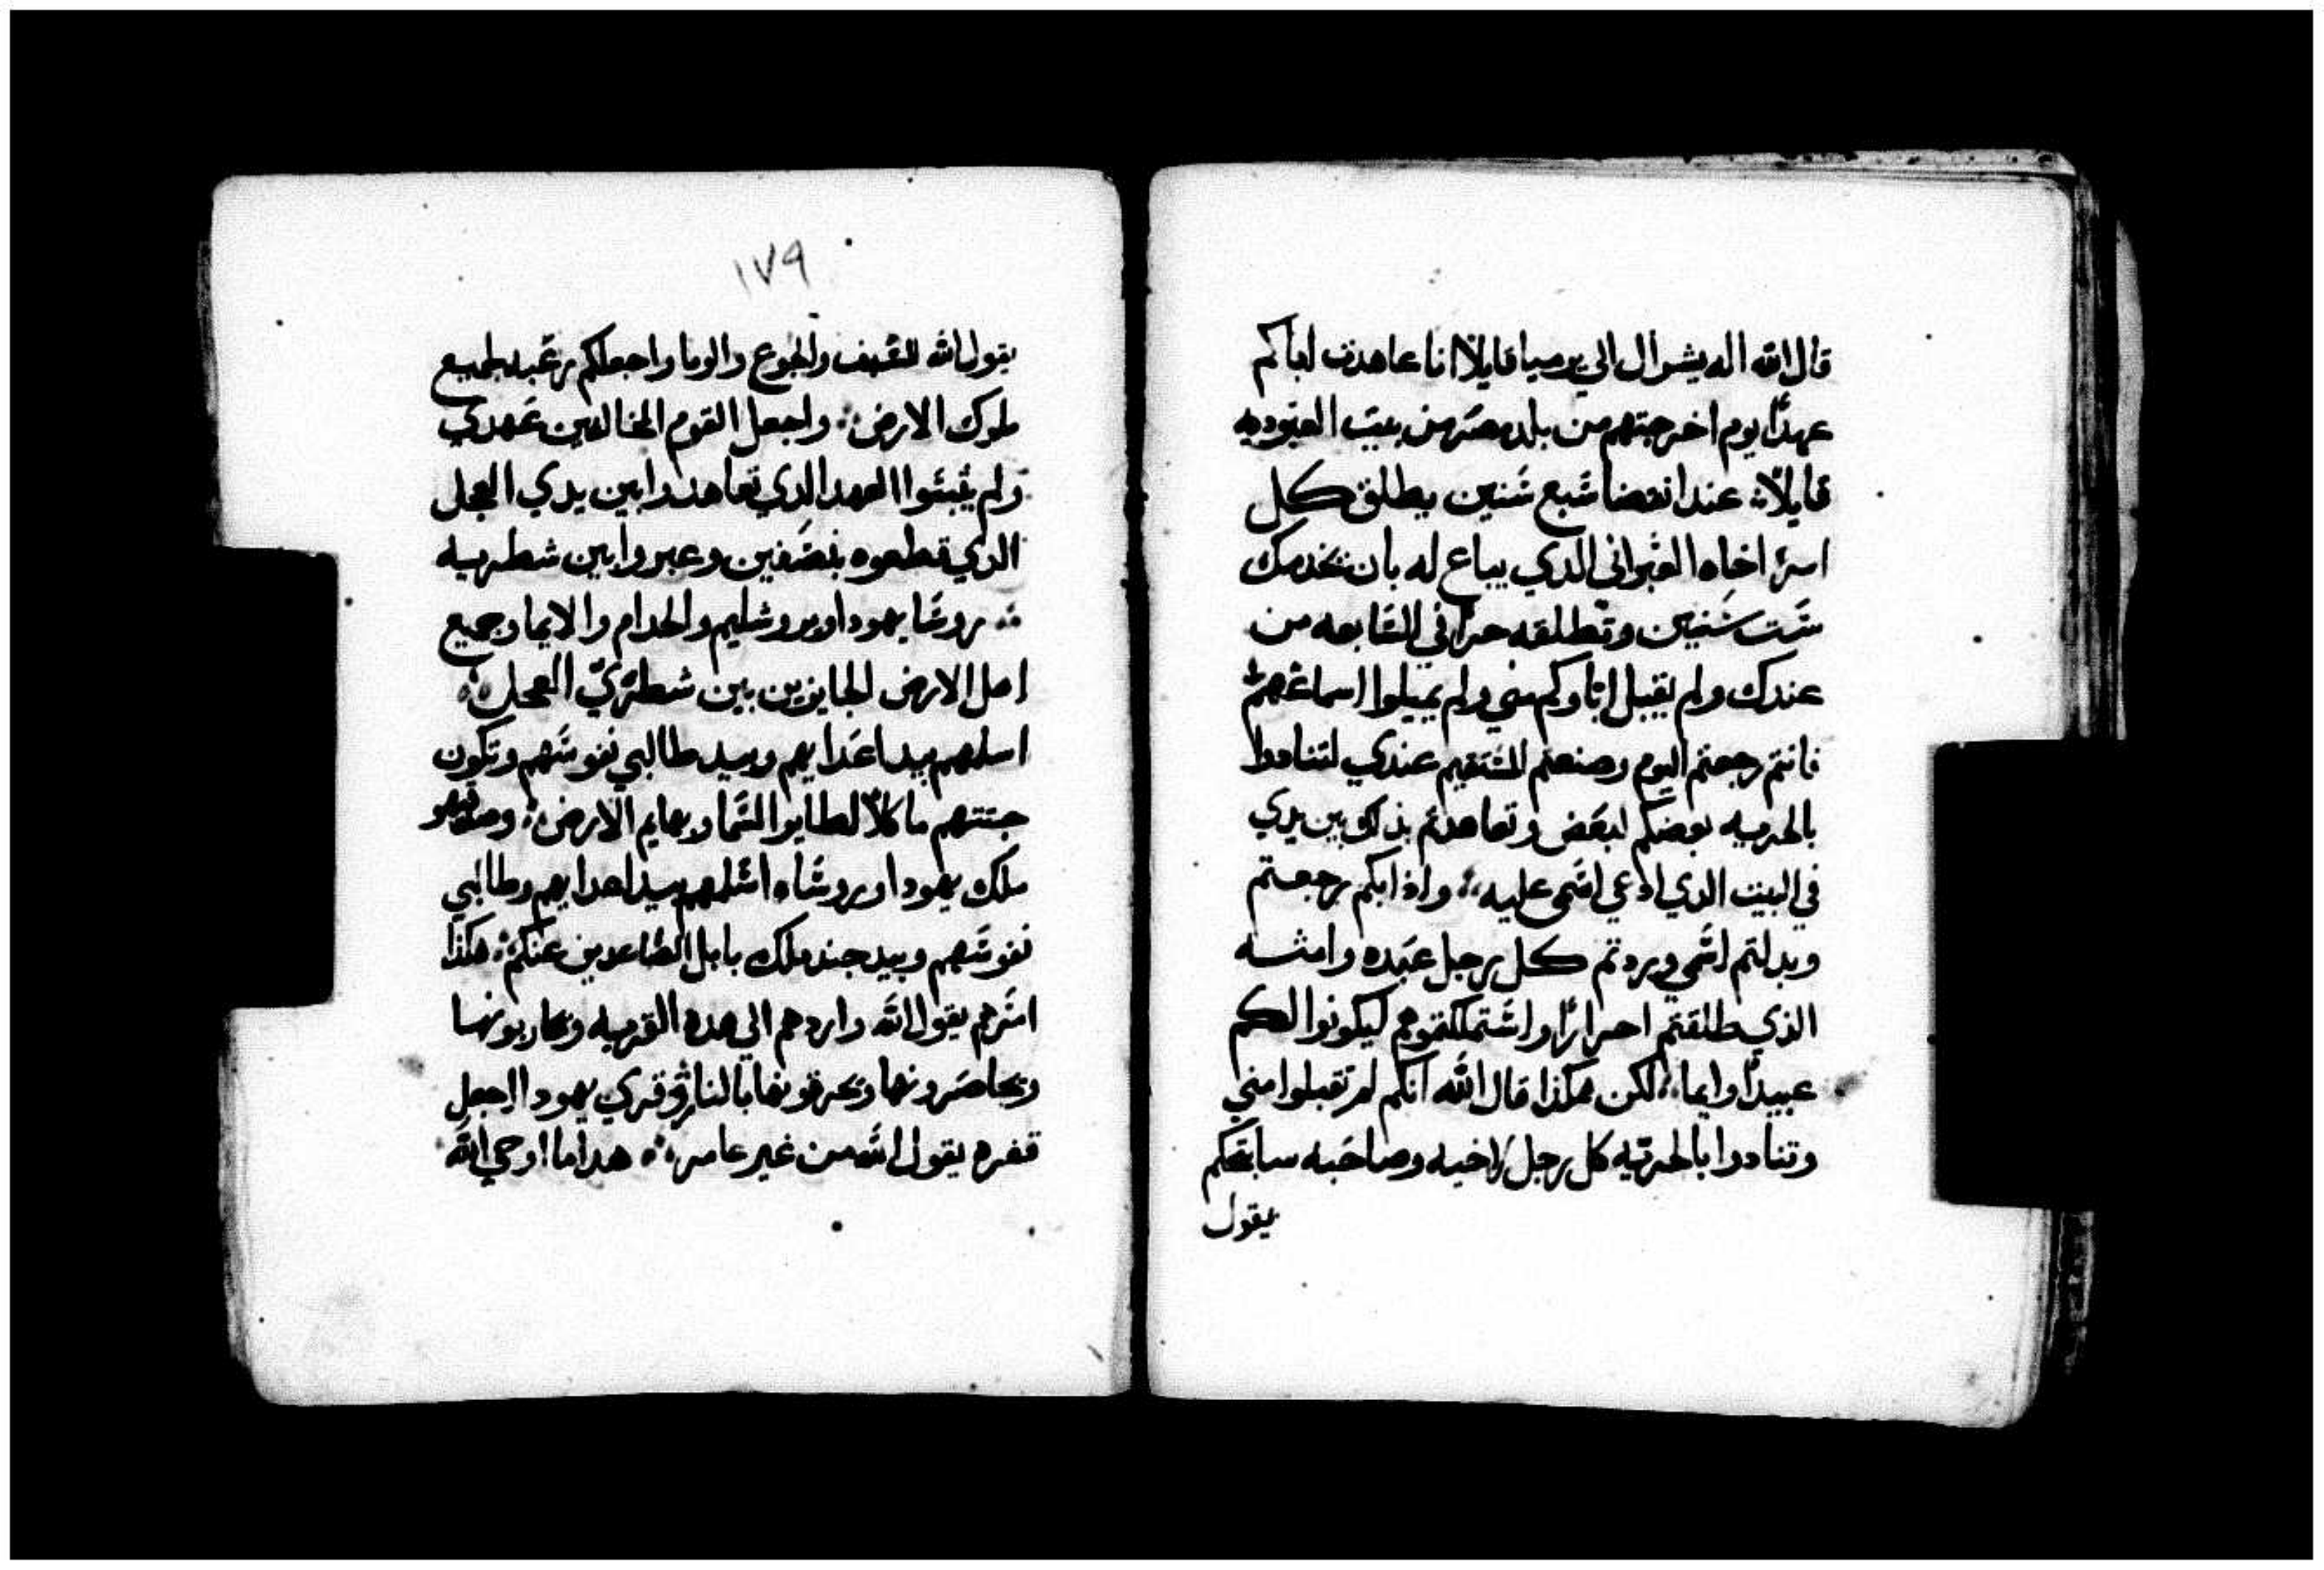 قال الله اله يسرال الي يرميا قايلا انا عاهدت اباكم
عهدًا يوم اخرجتهم من بلد مصر من بيت العبوديه
قايلاً عند انقضا سبع سنين يطلق كل
امرء اخاه العبراني الدي يباع له بان يخدمك
ست سنين وتطلقه حرًا في السابعه من
عندك ولم يقبل اباوكم مني ولم يميلوا اسماعهم
فانتم رجعتم اليوم وصنعتم المستقيم عندي لتنادوا
بالحريه بعضكم لبعض وتعاهدتم بذلك بين يدي
في البيت الدي ادعي اسمي عليه واذا بكم رجعتم
وبدلتم اسمي ورددتم كل رجل عبده وامته
الذي طلقتم احرارًا واستملكتموهم ليكونوا لكم
عبيدًا وايما لكن هكذا قال الله انكم لم تقبلوا مني
وتنادوا بالحريه كل رجل لاخيه وصاحبه سابقكم
يقول
١٧٩
يقول الله للسيف والجوع والوبا واجعلكم رعبه لجميع
ملوك الارض واجعل القوم المخالفين عهدي
ولم يثبتوا العهد الدي تعاهدوا بين يدي العجل
الدي قطعوه بنصفين وعبروا بين شطريه
روسا يهودا ويروشليم والخدام والايما وجميع
اهل الارض الجايزين بين شطري العجل
اسلمهم بيد اعدايهم وبيد طالبي نفوسهم وتكون
جتتهم ماكلاً لطاير السما وبهايم الارض وصدقيهو
ملك يهودا وروساه اسلمهم بيد اعدايهم وطالبي
نفوسهم وبيد جند ملك بابل الصاعدين عنكم هكذا
امرهم يقول الله واردهم الي هده القريه ويحاربونها
ويحاصرونها ويحرقونها بالنار وقري يهودا اجعل
قفره يقول الله من غير عامر هدا ما اوحي الله